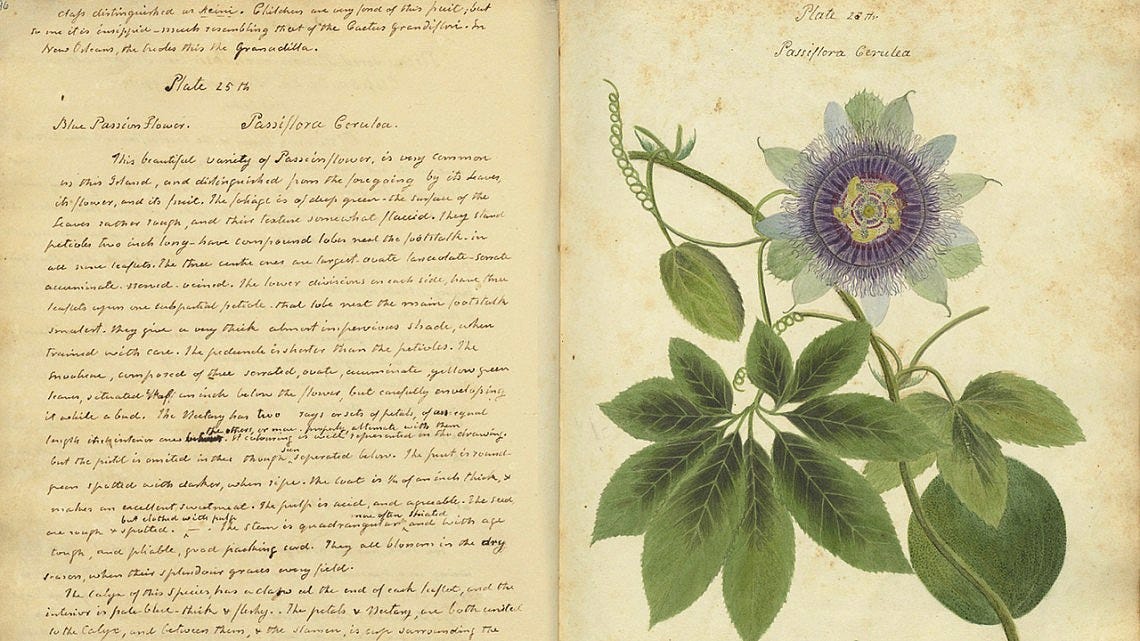 96
class distinguished as Hemi. Children are very fond of this fruit; but
to me it is insipid - much resembling that of the Cactus Grandiflori. In
New Orleans, the creoles this the Granadilla.
Plate 25th
Blue Passion Flower. Passiflora Cerulea.
This beautiful variety of Passion flower, is very common
in this Island, and distinguished from the foregoing by its leaves,
its flower, and its fruit. The foliage is of deep green - the surface of the
leaves rather rough, and their texture somewhat flaccid. They stand
petioles two inch long - have compound lobes next the footstalk - in
all nine leaflets. The three centre ones are largest - ovate lanceolate - serrate
accuminate - veined. The lower divisions on each side, have three
leaflets upon one subpartial petiole - that lobe next the main footstalk
smallest. They give a very thick almost impervious shade, when
trained with care. The peduncle is shorter than the petioles. The
composed of three serrated, ovate, accuminate, yellow green
leaves, situated half an inch below the flower, but carefully enveloping
it while a bud. The Nectary has two rays or sets of petals, of an equal
the others, or more properly alternate with them
length its interior ones. It colouring is well represented in the drawing.
but the pistil is omited in this though seperated below. The fruit is round
green spotted with darker, when ripe. The coat is ¾ of an inch thick, &
makes an excellent sweetmeat. The pulp is acid, and agreeable. The seed
but clothed with pulp more often striated
are rough & spotted. The stem is quadrangular and with age
tough, and pliable, good packing cord. They all blossom in the dry
season, when their splendour graces every field.
The Calyx of this species has a claw at the end of each leaflet, and the
interior is pale blue - thick & fleshy. The petals & Nectary, are both united
to the Calyx, and between them, & the stamen, is a cup surrounding the
Plate 25th
Passiflora Cerulea